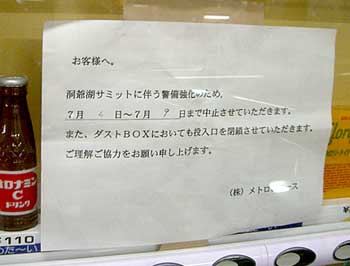 お客様へ。
洞爺湖サミットに伴う警備強化のため、
7月 日～7月 9 日まで中止させていただきます。
また、ダストBOXにおいても投入口を閉鎖させていただきます。
ご理解ご協力をお願い申し上げます。
(株) メトロ ース
ロナミン
C
ドリンク
￥110